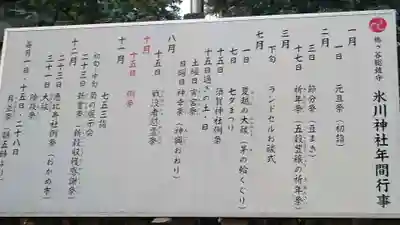 鳩ヶ谷総鎮守
氷川神社年間行事
一月
一日 元旦祭(初詣)
二月
三日 節分祭(豆まき)
十七日 祈年祭(五穀豊穣の祈年祭)
三月
下旬 ランドセルお祓式
七月
一日 夏越の大祓(茅の輪くぐり)
七日 七夕まつり
十五日 須賀神社例祭
十五日過ぎの土・日
土曜日
日曜日 神幸祭(神輿おねり)
八月
十五日 戦没者慰霊祭
十月
十五日 例祭
十一月
七五三詣
初旬・中旬 菊の展示会
二十三日 新嘗祭(新穀収穫感謝祭)
十二月
二十三日 例祭(おかめ市)
三十一日 大祓
除夜祭
毎月一日・十五日・二十八日
月次祭